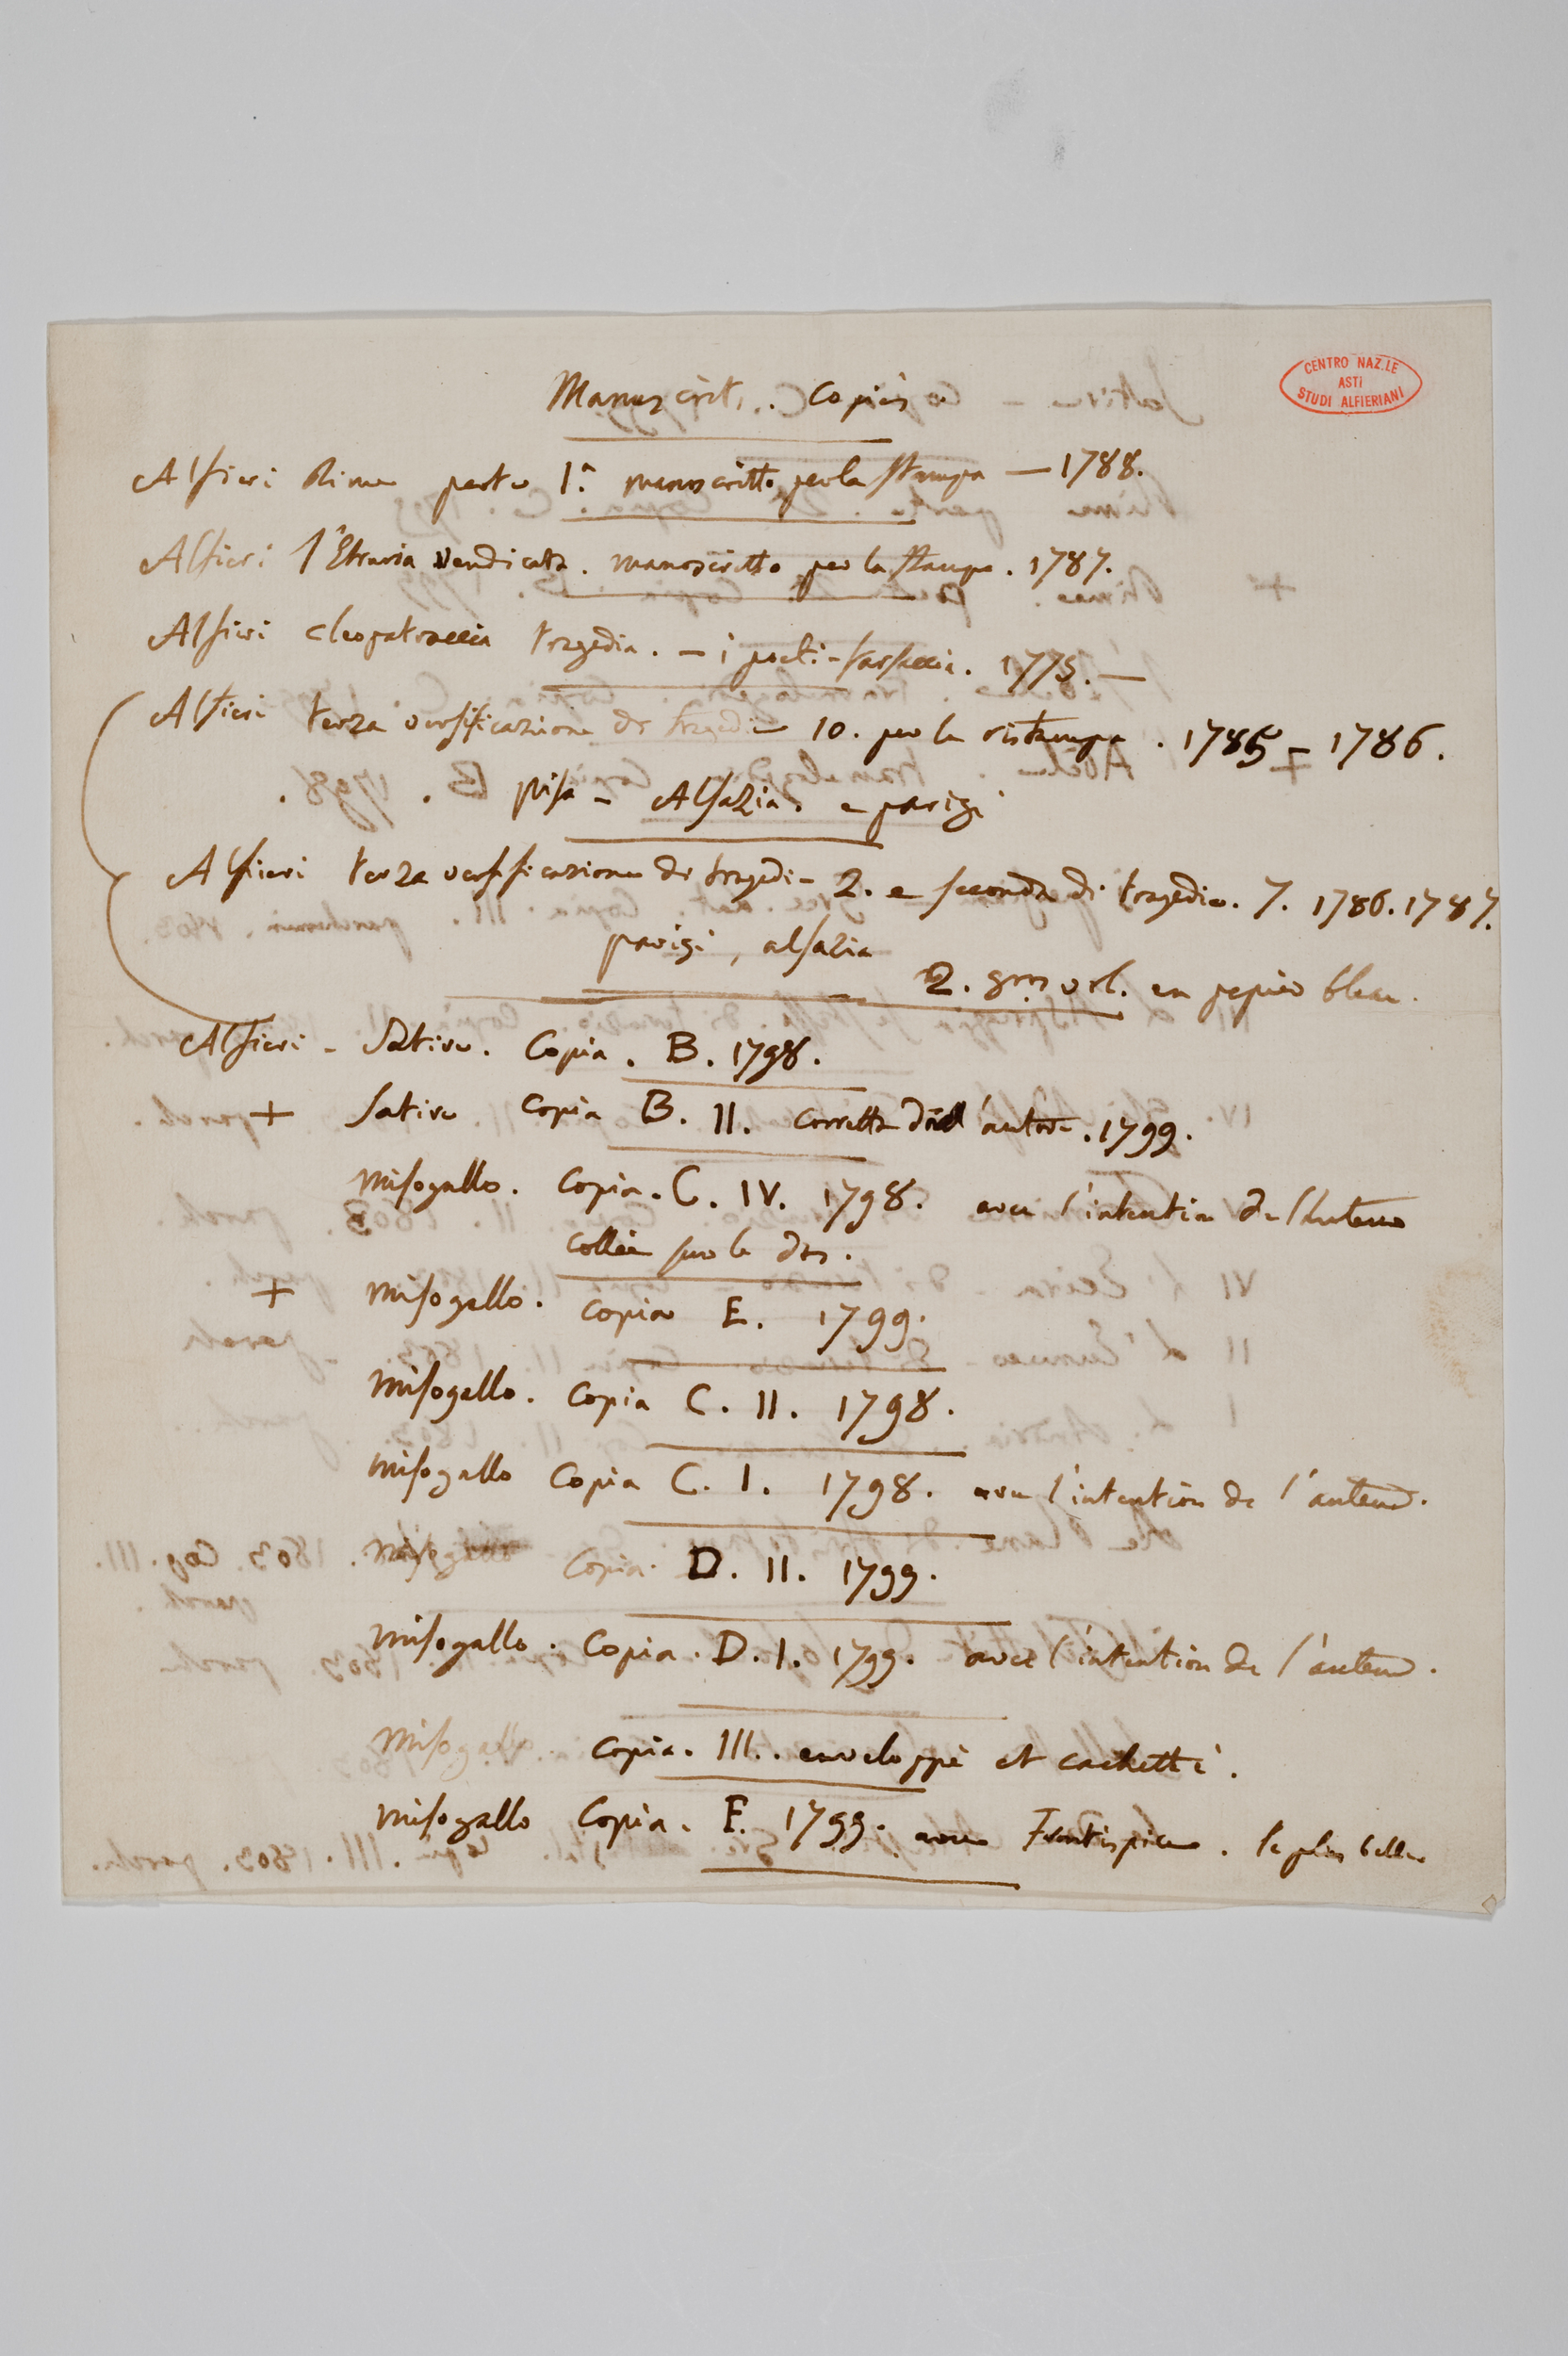 Manuscrits. Copiés
CENTRO NAZ.LE
ASTI
STUDI ALFIERIANI
Alfieri Rime parte 1.ª manoscritto per la stampa — 1788.
Alfieri l'Etruria vendicata. manoscritto per la stampa. 1787.
Alfieri cleopatraccia tragedia. — i poeti - farsaccia. 1775. —
Alfieri terza versificazione di tragedie 10. per la ristampa. 1785 = 1786.
pisa - Alsazia. e parigi
Alfieri terza versificazione di tragedie 2. e seconda di tragedie. 7. 1786. 1787.
parigi, alsazia
2. gros vol. en papier bleu.
Alfieri - Satire. Copia. B. 1798.
+ Satire Copia B. II. corretta dall'autore. 1799.
Misogallo. Copia. C. IV. 1798. avec l'intention de l'auteur
collée sur le dos.
+ Misogallo. Copia E. 1799.
Misogallo. Copia C. II. 1798.
Misogallo Copia C. I. 1798. avec l'intention de l'auteur.
Misogallo Copia D. II. 1799.
Misogallo. Copia. D. I. 1799. avec l'intention de l'auteur.
Misogallo. Copia. III. enveloppé et cachetté.
Misogallo Copia. F. 1799. avec Frontispice. le plus belle